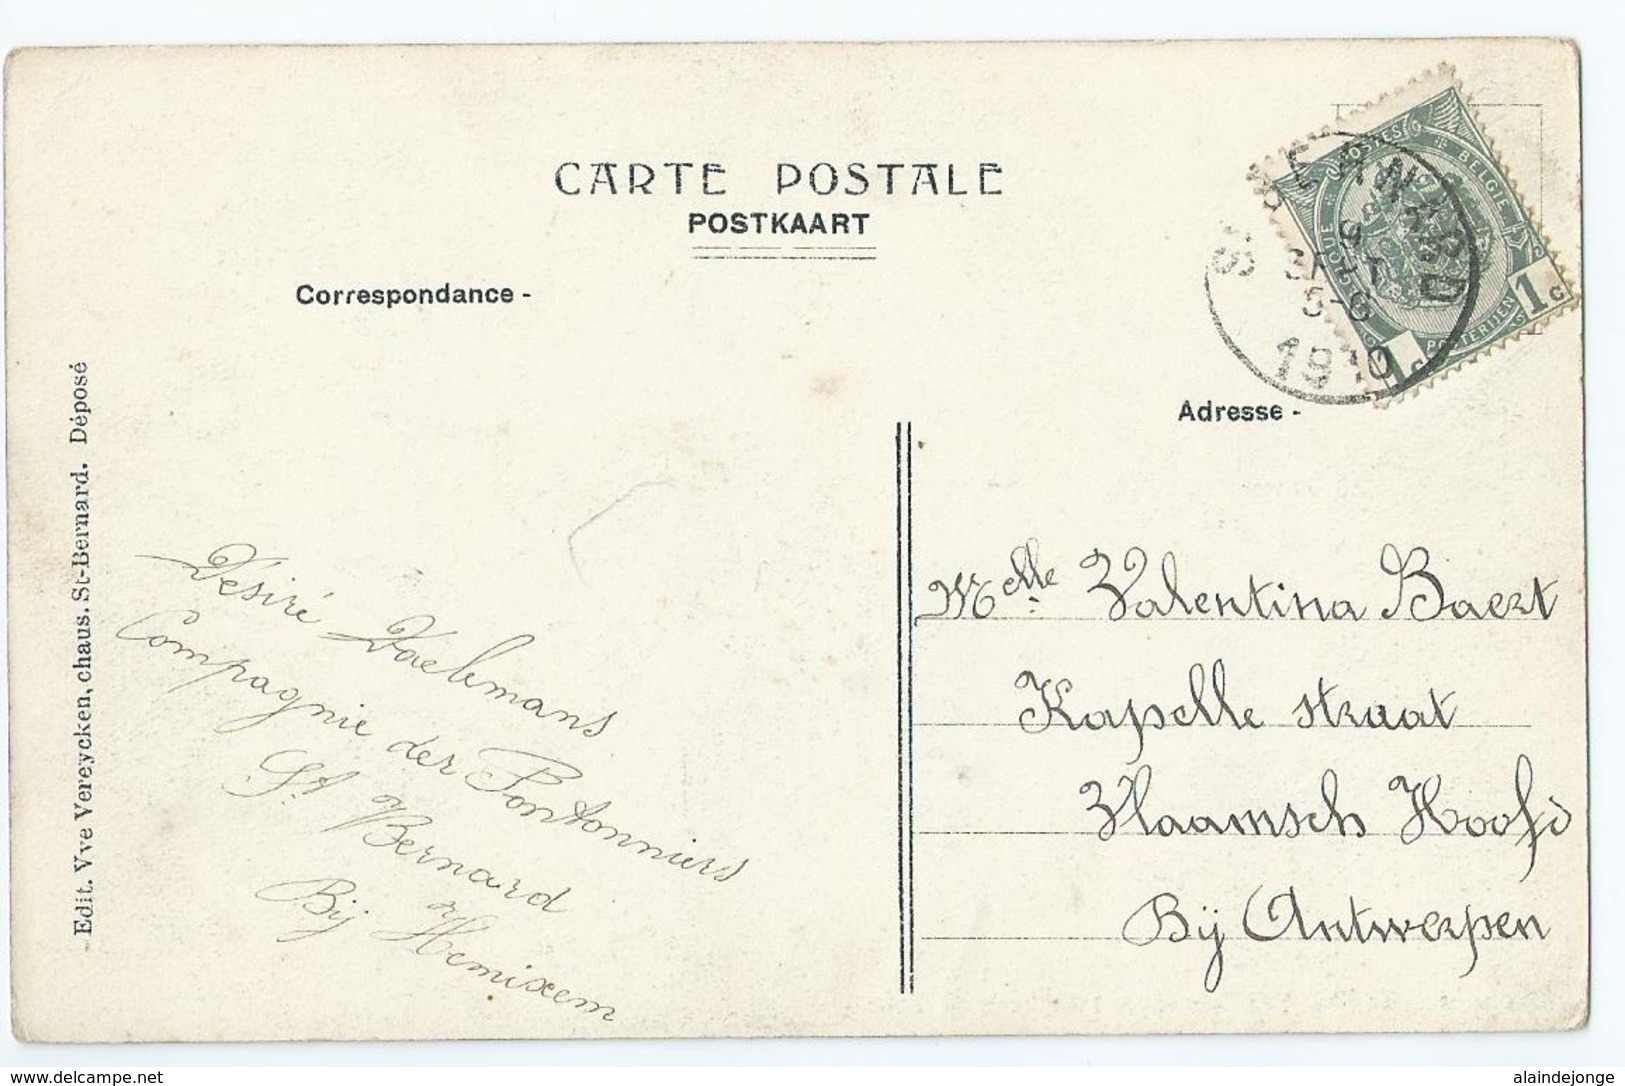 CARTE POSTALE
POSTKAART
Correspondance -
Adresse -
Edit. Vve Vereycken, chaus. St-Bernard. Déposé
Désiré Daelemans
Compagnie der Pontonniers
St Bernard
Bij Hemixem
Melle Valentina Baert
Kapelle straat
Vlaamsch Hoofd
Bij Antwerpen
ST BERNARD
9
SEPT
5-6
1910
POSTES
BELGIQUE
BELGIE
POSTERIJEN
1c
1c
www.delcampe.net
alaindejonge